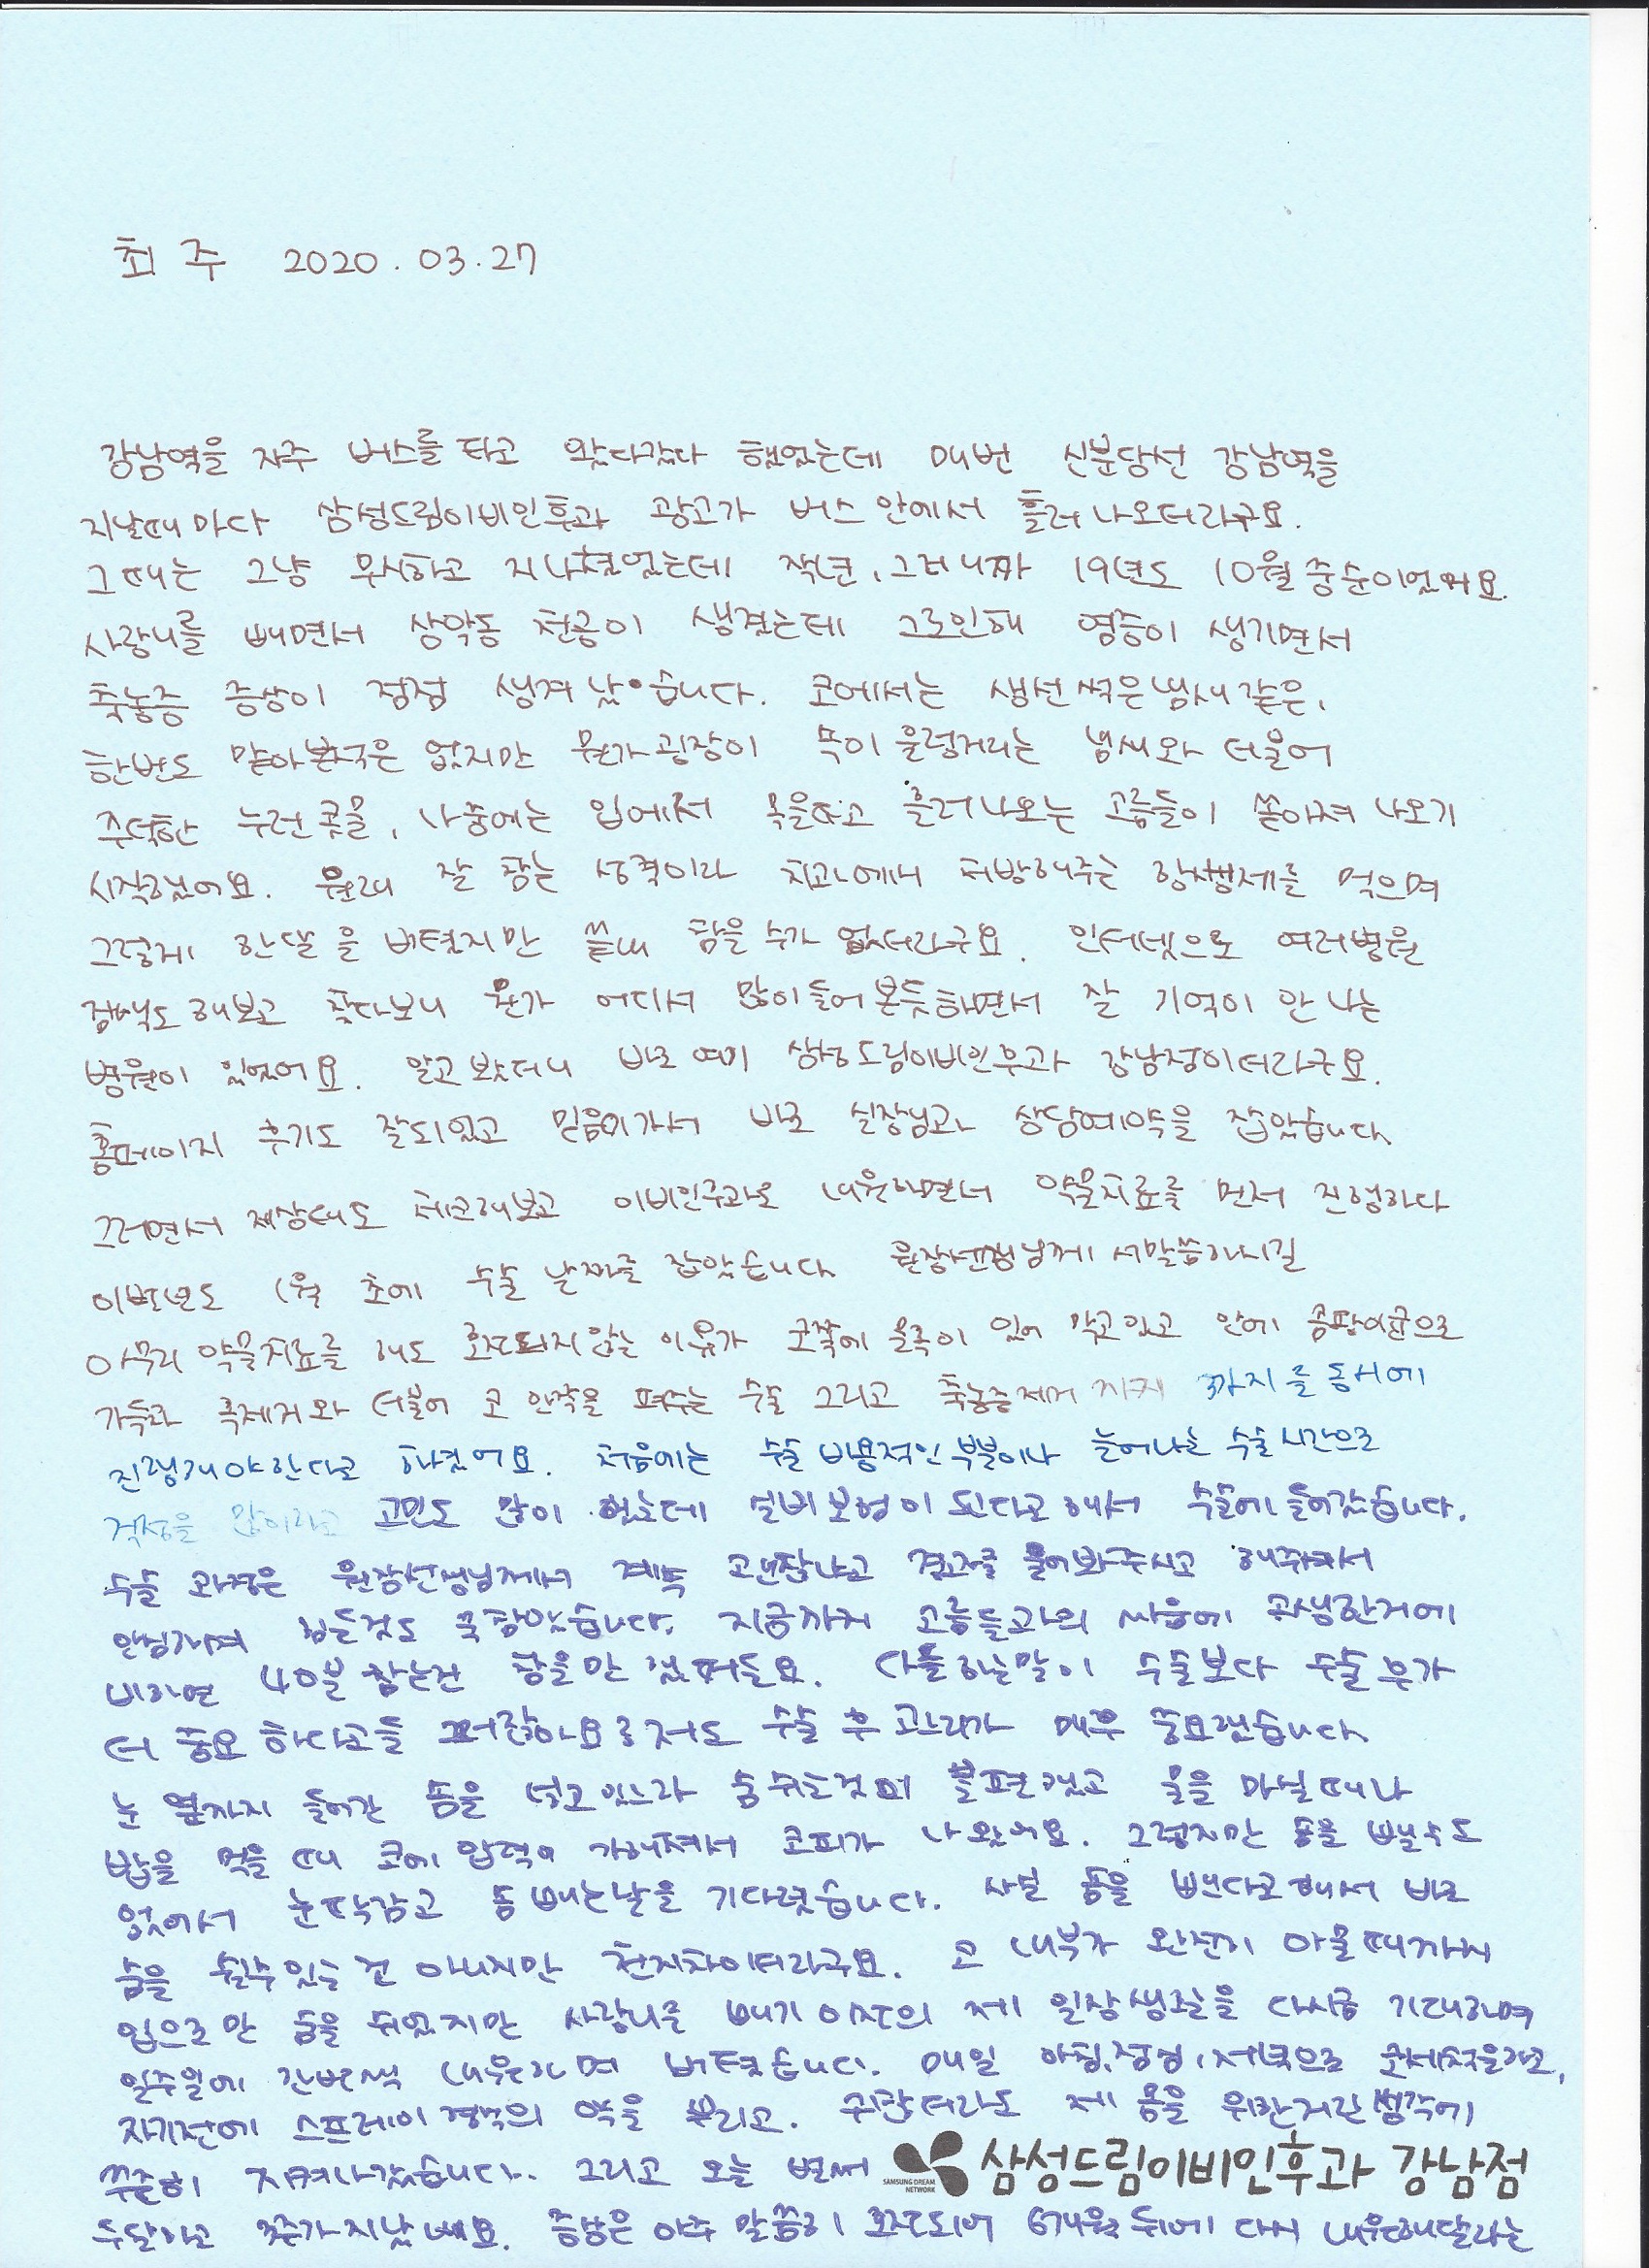 최 주 2020.03.27
강남역을 자주 버스를 타고 왔다갔다 했었는데 매번 신분당선 강남역을
지날때마다 삼성드림이비인후과 광고가 버스 안에서 흘러나오더라구요.
그때는 그냥 무시하고 지나쳤었는데 작년, 그러니까 19년도 10월 중순이었어요.
사랑니를 빼면서 상악동 천공이 생겼는데 그로인해 염증이 생기면서
축농증 증상이 점점 생겨 났습니다. 코에서는 생선썩은냄새같은,
한번도 맡아본적은 없지만 뭔가 굉장이 속이 울렁거리는 냄새와 더불어
주덕한 누런 콧물, 나중에는 입에서 목을타고 흘러나오는 고름들이 쏟아져 나오기
시작했어요. 원래 잘 참는 성격이라 치과에서 처방해주는 항생제를 먹으며
그렇게 한달을 버텼지만 끝내 참을 수가 없더라구요. 인터넷으로 여러병원
검색도 해보고 찾다보니 뭔가 어디서 많이 들어본듯하면서 잘 기억이 안 나는
병원이 있었어요. 알고 봤더니 바로 여기 삼성드림이비인후과 강남점이더라구요.
홈페이지 후기도 잘되있고 믿음이가서 바로 실장님과 상담예약을 잡았습니다
그러면서 제상태도 체크해보고 이비인후과로 내원하면서 약물치료를 먼저 진행하다
이번년도 1월 초에 수술 날짜를 잡았습니다 원장선생님께서말씀하시길
아무리 약물치료를 해도 호전되지않는 이유가 코쪽에 물혹이 있어 막고있고 안에 곰팡이균으로
가득차 혹제거와 더불어 코 안쪽을 펴주는 수술 그리고 축농증제거 까지 3가지를 동시에
진행해야한다고 하셨어요. 처음에는 수술 비용적인 부분이나 늘어나는 수술시간으로
걱정을 많이하고 고민도 많이 했는데 실비보험이 된다고 해서 수술에 들어갔습니다.
수술 과정은 원장선생님께서 계속 괜찮냐고 경과를 물어봐주시고 해주셔서
안심하며 힘든것도 꾹 참았습니다. 지금까지 고름들과의 싸움에 고생한거에
비하면 40분 참는건 참을만 했거든요. 다들하는말이 수술보다 수술 후가
더 중요 하다고들 그러잖아요? 저도 수술 후 관리가 매우 중요했습니다
눈 옆까지 들어간 솜을 넣고있느라 숨쉬는것이 불편했고 물을 마실때나
밥을 먹을 때 코에 압력이 가해져서 코피가 나왔어요. 그렇지만 솜을 뺄수도
없어서 눈딱감고 솜 빼는날을 기다렸습니다. 사실 솜을 뺀다고해서 바로
숨을 쉴수있는 건 아니지만 천지차이더라구요. 코 내부가 완전히 아물때까지
입으로만 숨을 쉬었지만 사랑니를 빼기 이전의 제 일상생활을 다시금 기대하며
일주일에 한번씩 내원하며 버텼습니다. 매일 아침,점심,저녁으로 코세척을하고,
자기전에 스프레이 형식의 약을 뿌리고. 귀찮더라도 제 몸을 위한거란 생각에
꾸준히 지켜나갔습니다. 그리고 오늘 벌써
삼성드림이비인후과 강남점
SAMSUNG DREAM NETWORK
두달하고 3주가지났네요. 증상은 아주 말끔히 호전되어 6개월 뒤에 다시 내원해달라는